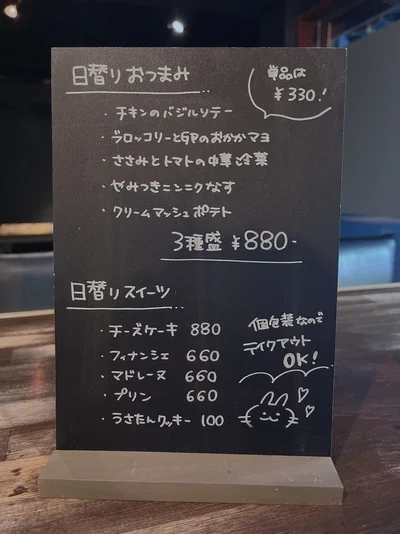 日替りおつまみ
単品は
¥330!
・チキンのバジルソテー
・ブロッコリーとGPのおかかマヨ
・ささみとトマトの中華冷菜
・やみつきニンニクなす
・クリームマッシュポテト
3種盛 ¥880-
日替りスイーツ
・チーズケーキ 880
・フィナンシェ 660
・マドレーヌ 660
・プリン 660
・うさたんクッキー 100
個包装なので
テイクアウト
OK!